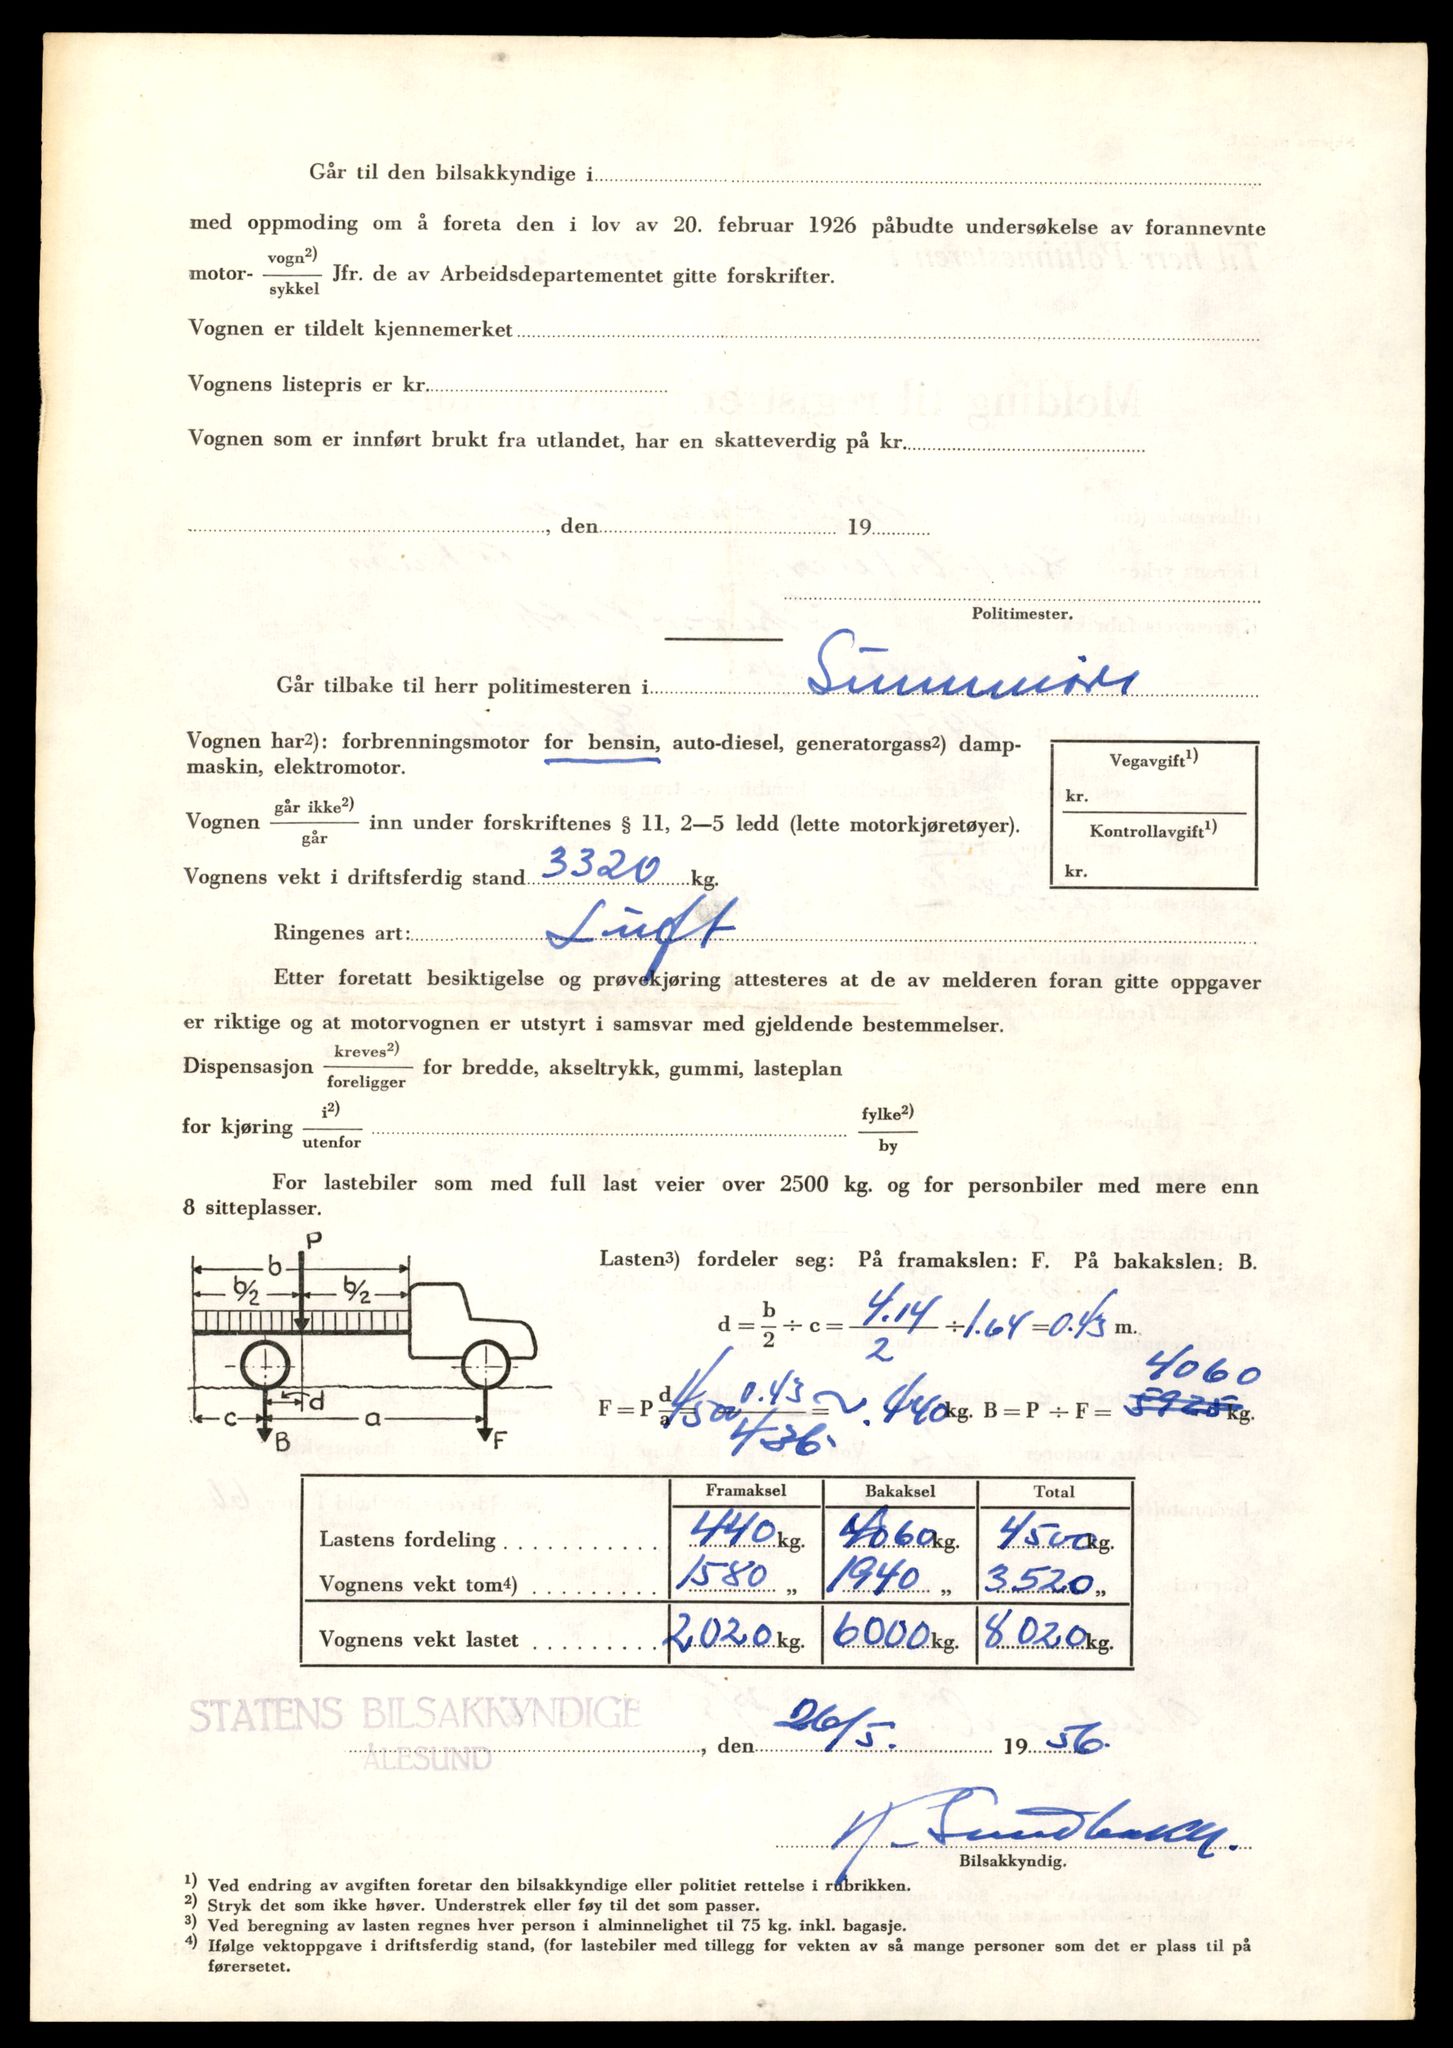 Går til den bilsakkyndige i
med oppmoding om å foreta den i lov av 20. februar 1926 påbudte undersøkelse av forannevnte
motor- vogn2) / sykkel Jfr. de av Arbeidsdepartementet gitte forskrifter.
Vognen er tildelt kjennemerket
Vognens listepris er kr.
Vognen som er innført brukt fra utlandet, har en skatteverdig på kr.
, den 19
Politimester.
Går tilbake til herr politimesteren i Sunnmøre
Vognen har2): forbrenningsmotor for bensin, auto-diesel, generatorgass2) damp-
maskin, elektromotor.
Vegavgift1)
kr.
Kontrollavgift1)
kr.
Vognen går ikke2) / går inn under forskriftenes § 11, 2—5 ledd (lette motorkjøretøyer).
Vognens vekt i driftsferdig stand 3320 kg.
Ringenes art: Luft
Etter foretatt besiktigelse og prøvekjøring attesteres at de av melderen foran gitte oppgaver
er riktige og at motorvognen er utstyrt i samsvar med gjeldende bestemmelser.
Dispensasjon kreves2) / foreligger for bredde, akseltrykk, gummi, lasteplan
for kjøring i2) / utenfor fylke2) / by
For lastebiler som med full last veier over 2500 kg. og for personbiler med mere enn
8 sitteplasser.
P
b
b/2 b/2
c d a
B F
Lasten3) fordeler seg: På framakslen: F. På bakakslen: B.
d = b/2 ÷ c = 4.14/2 ÷ 1.64 = 0.43 m.
4060
F = P d/a = 4500 0.43/436 = ~ 440 kg. B = P ÷ F = 5925 kg.
Framaksel Bakaksel Total
Lastens fordeling 440 kg. 4060 kg. 4500 kg.
Vognens vekt tom4) 1580 „ 1940 „ 3520 „
Vognens vekt lastet 2020 kg. 6000 kg. 8020 kg.
STATENS BILSAKKYNDIGE
ÅLESUND
, den 26/5. 1956.
K. Sundbakk
Bilsakkyndig.
1) Ved endring av avgiften foretar den bilsakkyndige eller politiet rettelse i rubrikken.
2) Stryk det som ikke høver. Understrek eller føy til det som passer.
3) Ved beregning av lasten regnes hver person i alminnelighet til 75 kg. inkl. bagasje.
4) Ifølge vektoppgave i driftsferdig stand, (for lastebiler med tillegg for vekten av så mange personer som det er plass til på
førersetet.